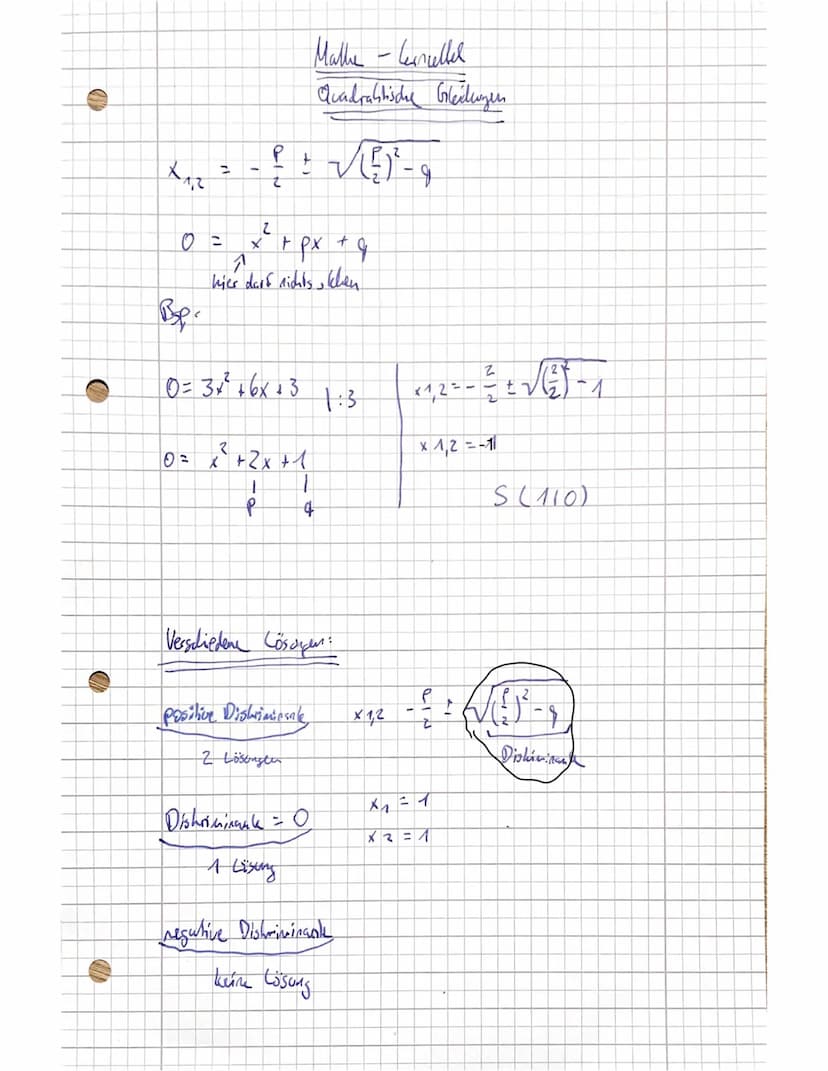 Mathe - Lernzettel
Quadratische Gleichungen
x₁,₂ = - p/2 ± √((p/2)² - q)
0 = x² + px + q
↑
hier darf nichts stehen
Bsp.
0 = 3x² + 6x + 3 |:3
0 = x² + 2x + 1
p q
x1,2 = - 2/2 ± √((2/2)² - 1)
x 1,2 = -1
S (1|0)
Verschiedene Lösungen:
positive Diskriminante
2 Lösungen
x1,2 - p/2 ± √((p/2)² - q)
Diskriminante
Diskriminante = 0
1 Lösung
x₁ = 1
x 2 = 1
negative Diskriminante
keine Lösung